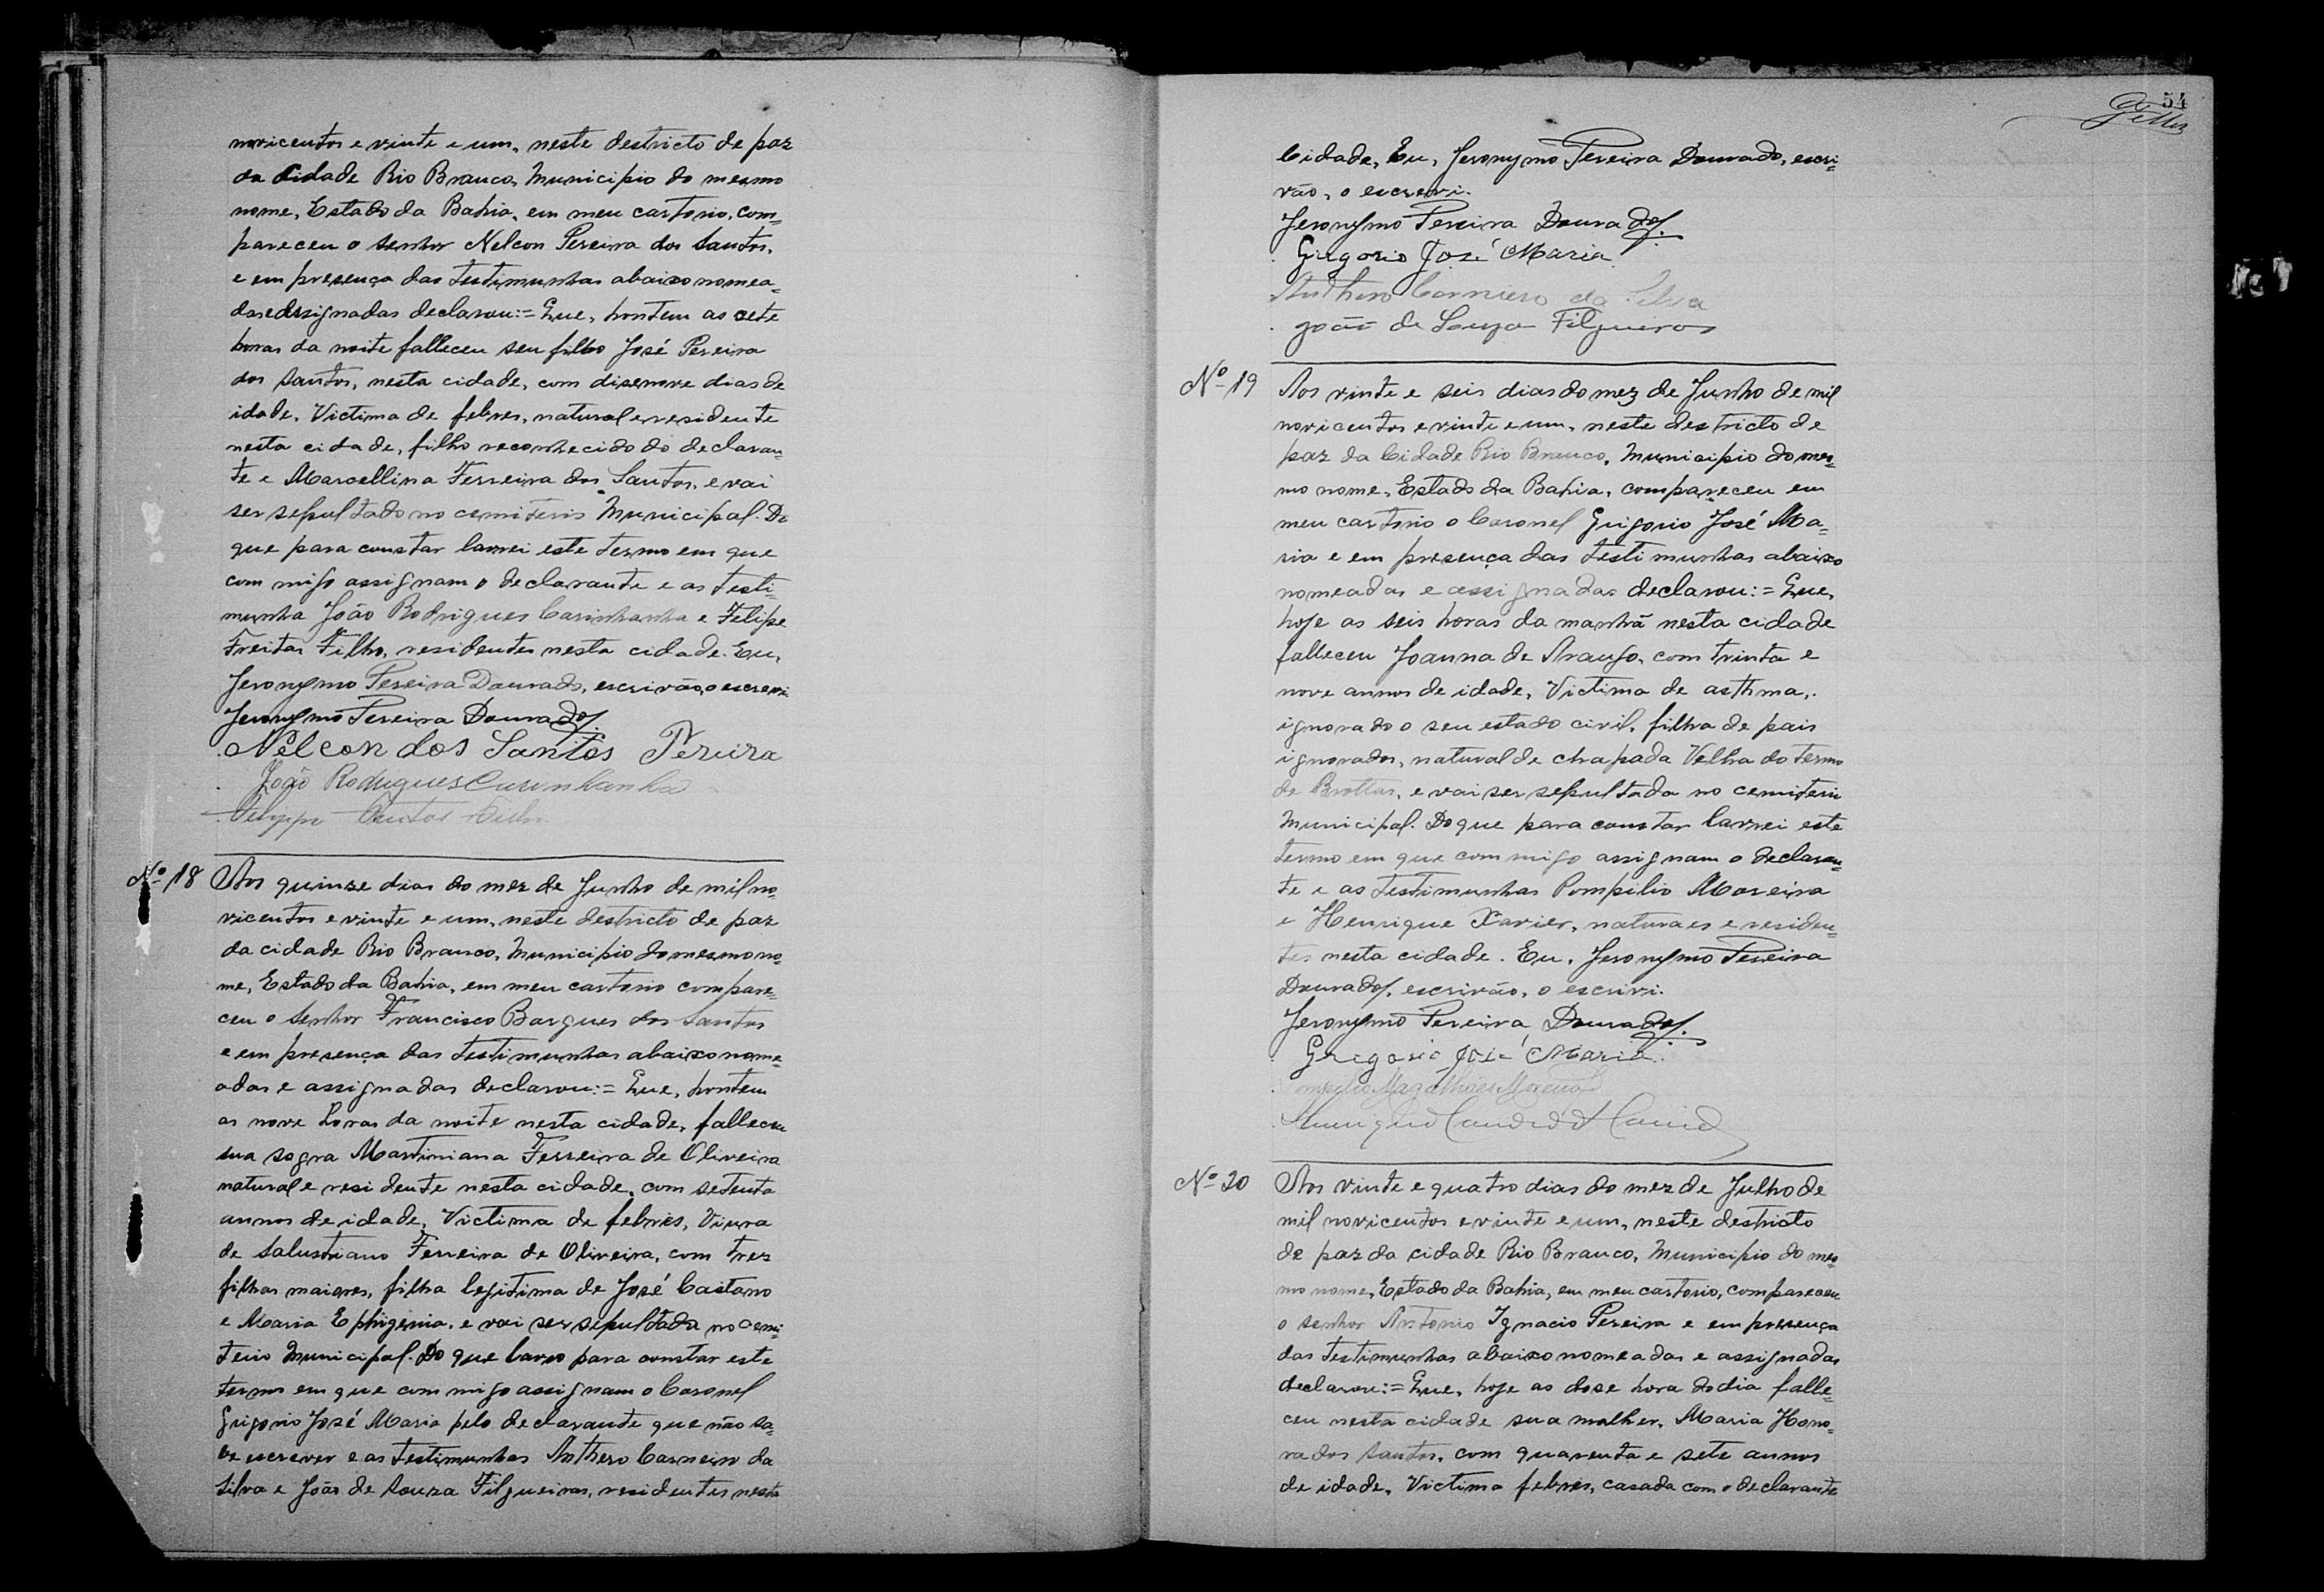 novicentos e vinte e um, neste destricto de paz
da Cidade Rio Branco, Municipio do mesmo
nome, Estado da Bahia, em meu cartorio, com=
pareceu o senhor Nelcon Pereira dos Santos,
e em presença das testimunhas abaixo nomea=
das e assignadas declarou:= Que, hontem as sete
horas da noite falleceu seu filho José Pereira
dos Santos, nesta cidade, com disenove dias de
idade, Victima de febres, natural e residente
nesta cidade, filho reconhecido do declaran=
te e Marcellina Ferreira dos Santos, e vai
ser sepultado no cemiterio Municipal. Do
que para constar lavrei este termo em que
com migo assignam o declarante e as testi=
munha João Rodrigues Carinhanha e Felipe
Freitas Filho, residentes nesta cidade. Eu,
Jeronymo Pereira Dourado, escrivão, o escrevi
Jeronymo Pereira Dourado.
Nelcon dos Santos Pereira
João Rodrigues Carinhanha
Filho
Nº 18 Aos quinze dias do mez de Junho de mil no=
vicentos e vinte e um, neste destricto de paz
da cidade Rio Branco, Municipio do mesmo no=
me, Estado da Bahia, em meu cartorio compare=
ceu o senhor Francisco Barques dos Santos
e em presença das testimunhas abaixo nome=
adas e assignadas declarou:= Que, hontem
as nove horas da noite nesta cidade, falleceu
sua sogra Martiniana Ferreira de Oliveira
natural e residente nesta cidade, com setenta
annos de idade, Victima de febres, Viuva
de Salustiano Ferreira de Oliveira, com tres
filhos maiores, filha legitima de José Caitano
e Maria Ephigenia, e vai ser sepultada no cemi=
terio Municipal. Do que lavro para constar este
termo em que com migo assignam o Coronel
Grigorio José Maria pelo declarante que não sa=
be escrever e as testimunhas Anthero Carneiro da
Silva e João de Souza Filgueiras, residentes nesta
54
Cidade, Eu, Jeronymo Pereira Dourado, escri=
vão, o escrevi.
Jeronymo Pereira Dourado.
Grigorio José Maria
Anthero Carneiro da Silva
João de Souza Filgueiras
Nº 19 Aos vinte e seis dias do mez de Junho de mil
novicentos e vinte e um, neste destricto de
paz da Cidade Rio Branco, Municipio do mes=
mo nome, Estado da Bahia, compareceu em
meu cartorio o Coronel Grigorio José Ma=
ria e em presença das testimunhas abaixo
nomeadas e assignadas declarou:= Que,
hoje as seis horas da manhã nesta cidade
falleceu Joanna de Araujo, com trinta e
nove annos de idade, Victima de asthma,
ignorado o seu estado civil, filha de pais
ignorados, natural de chapada Velha do termo
de Brottas, e vai ser sepultada no cemiterio
Municipal. Do que para constar lavrei este
termo em que com migo assignam o declaran=
te e as testimunhas Pompilio Moreira
e Henrique Xavier, naturaes e residen=
tes nesta cidade. Eu, Jeronymo Pereira
Dourado, escrivão, o escrivi.
Jeronymo Pereira Dourado.
Gregorio José Maria
Magalhães Moreira
Nº 20 Aos vinte e quatro dias do mez de Julho de
mil novicentos e vinte e um, neste destricto
de paz da cidade Rio Branco, Municipio do mes=
mo nome, Estado da Bahia, em meu cartorio, compareceu
o senhor Antonio Ignacio Pereira e em presença
das testimunhas abaixo nomeadas e assignadas
declarou:= Que, hoje as dose hora do dia falle=
ceu nesta cidade sua mulher, Maria Hono=
ra dos Santos, com quarenta e sete annos
de idade, Victima febres, casada com o declarante